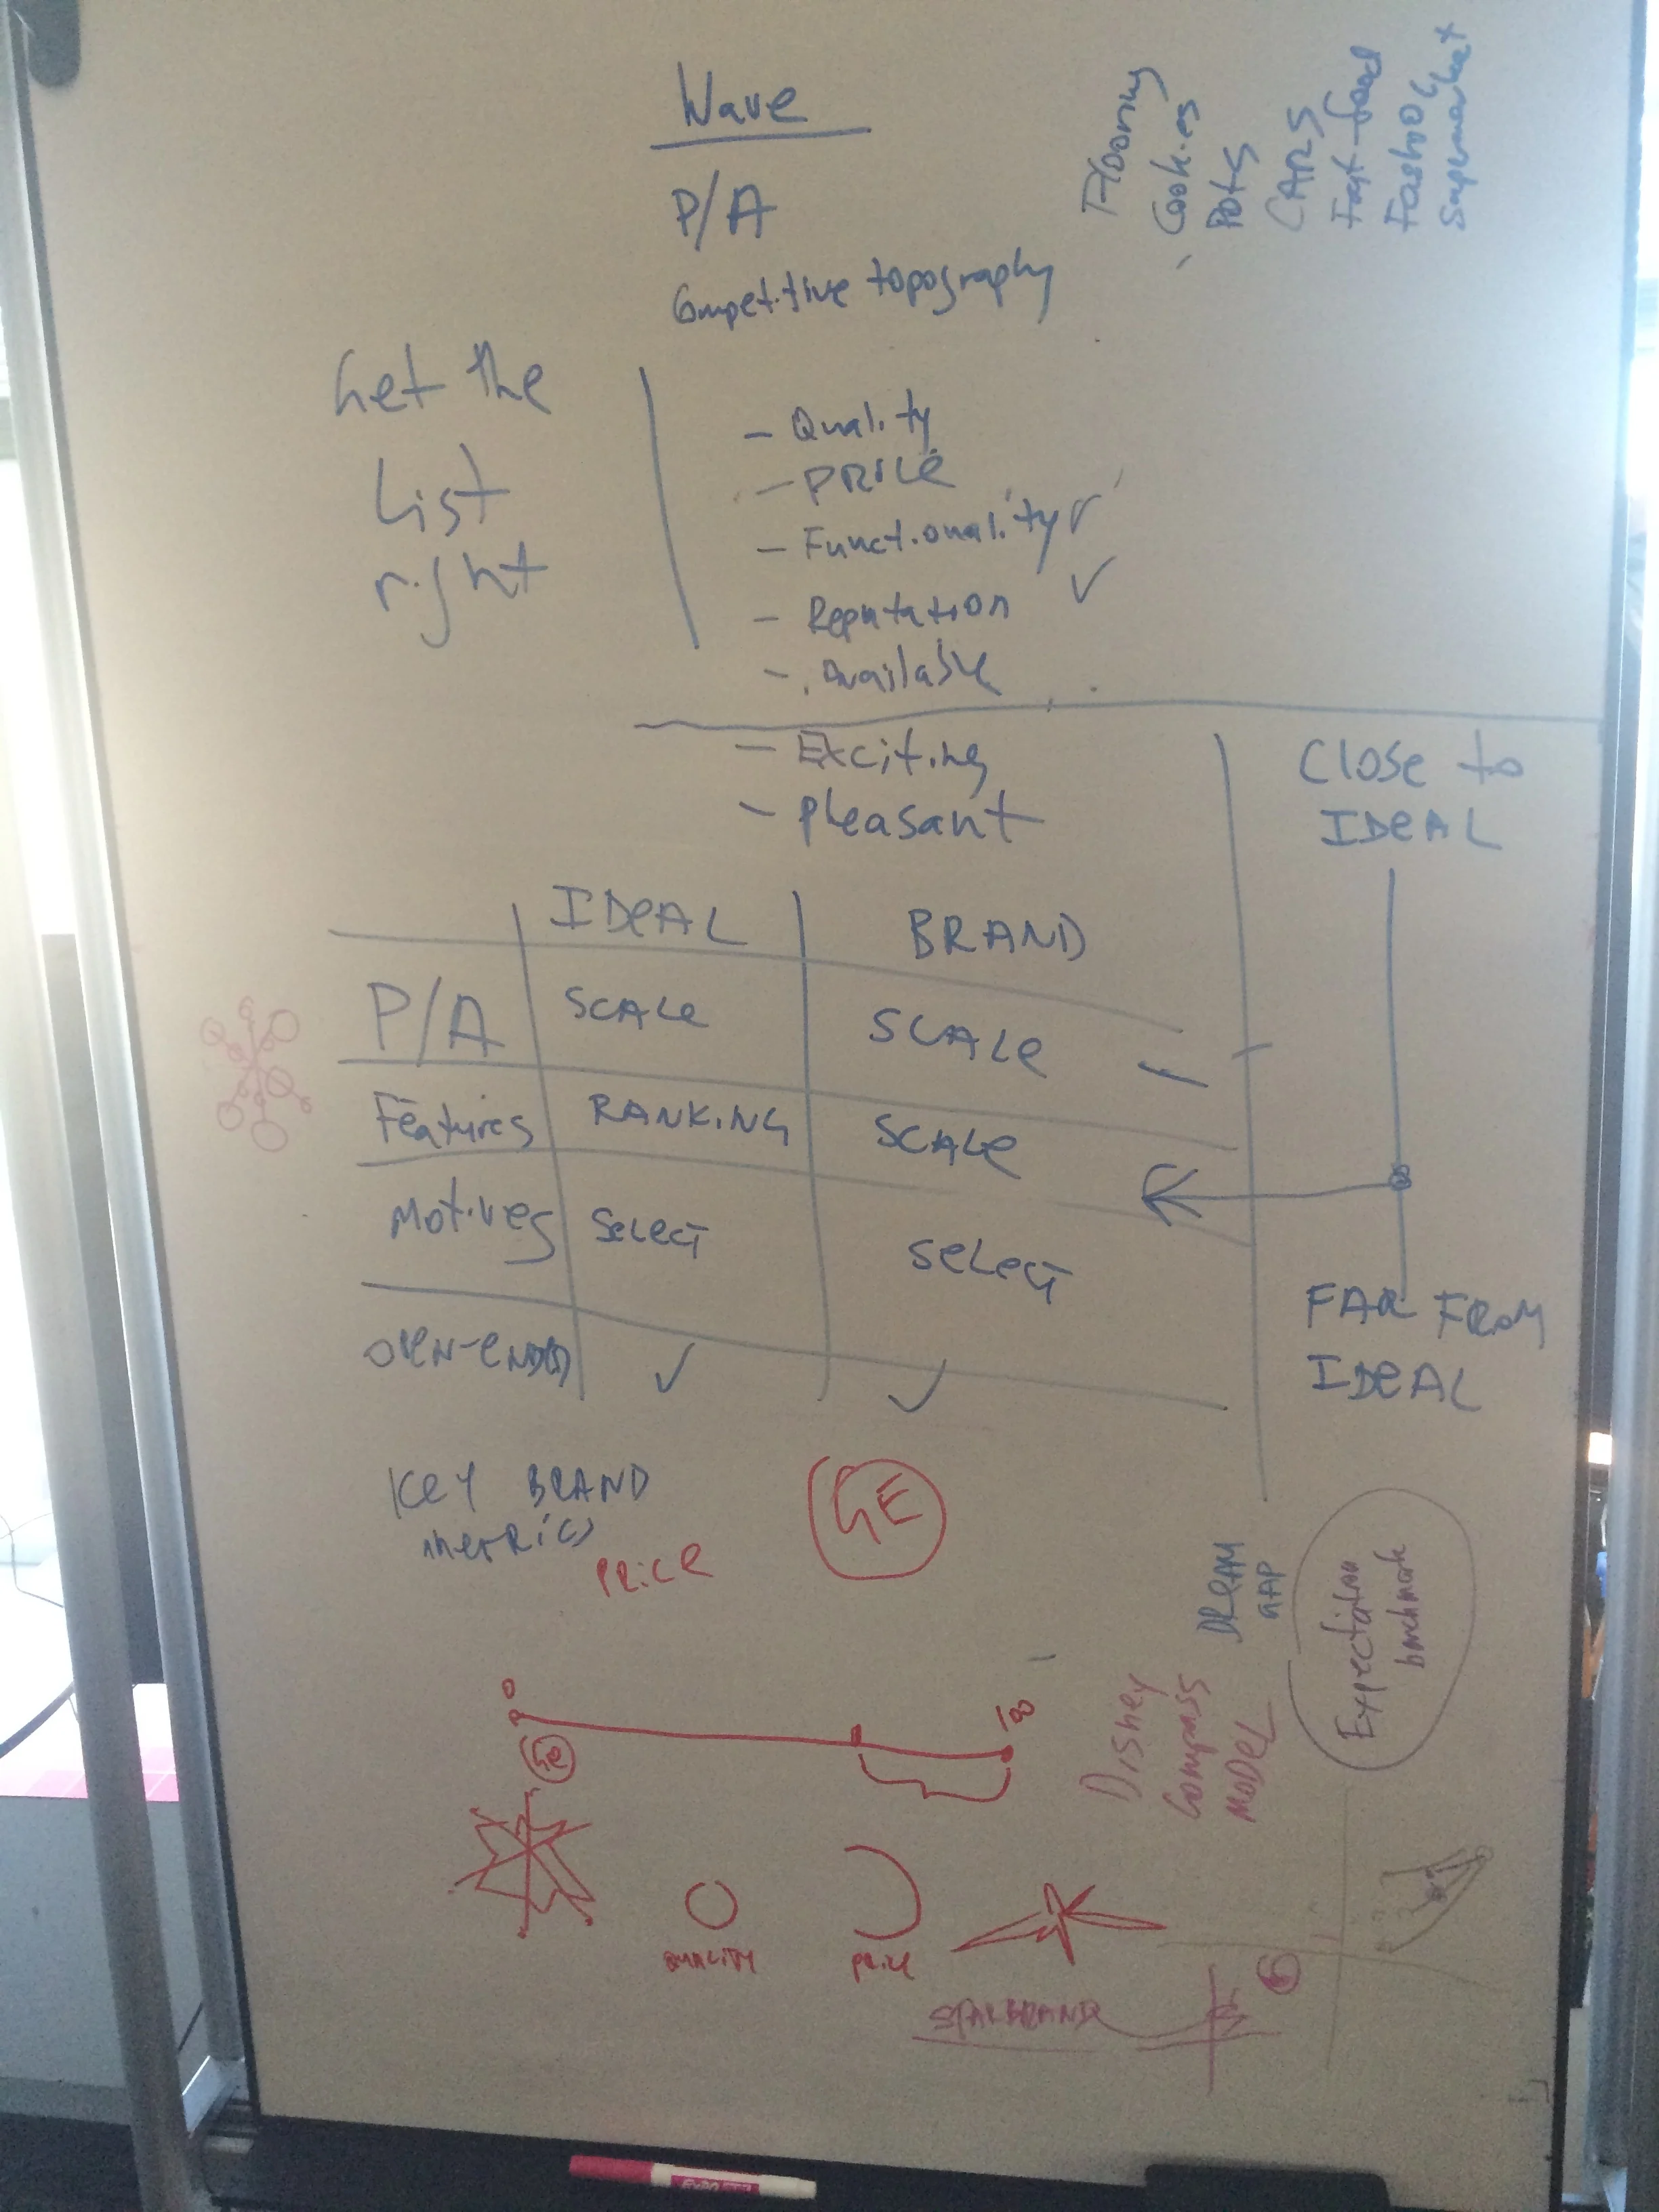 Wave
P/A
Competitive topography
Flooring
Cookies
Pots
CARS
Fast-food
Fashion
Supermarket
Get the
List
right
- Quality
- PRICE
- Functionality ✓
- Reputation ✓
- Available
- Exciting
- Pleasant
Close to
IDEAL
IDEAL BRAND
P/A SCALE SCALE
Features RANKING SCALE
Motives Select Select
OPEN-ENDED ✓ ✓
FAR FROM
IDEAL
KEY BRAND
metrics
PRICE
GE
DREAM
GAP
Expectation
benchmark
0
100
GE
Disney
Compass
MODEL
QUALITY
price